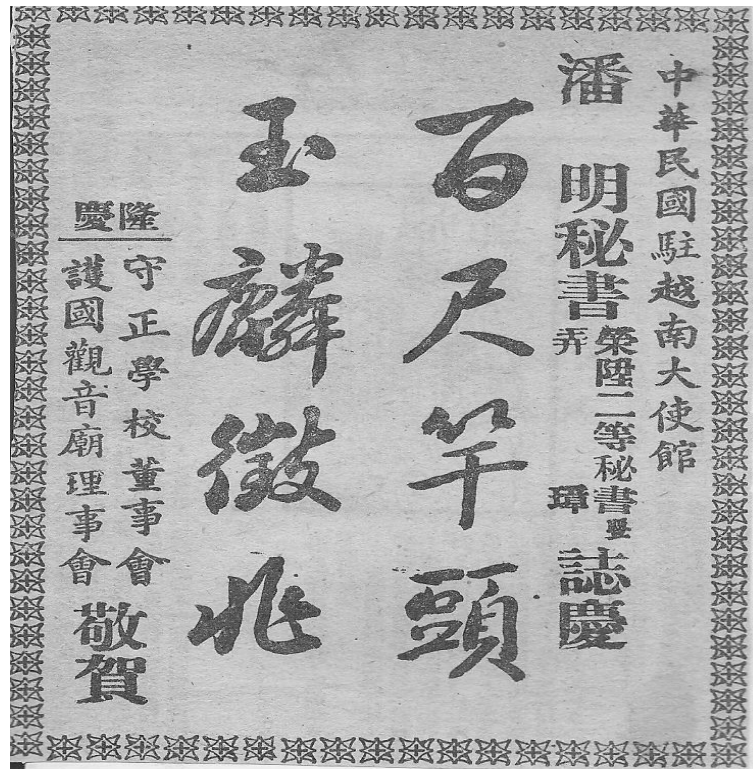 中華民國駐越南大使館
潘明秘書
榮陞二等秘書暨
弄璋
誌慶
百尺竿頭
玉麟徵兆
隆慶
守正學校董事會
護國觀音廟理事會
敬賀